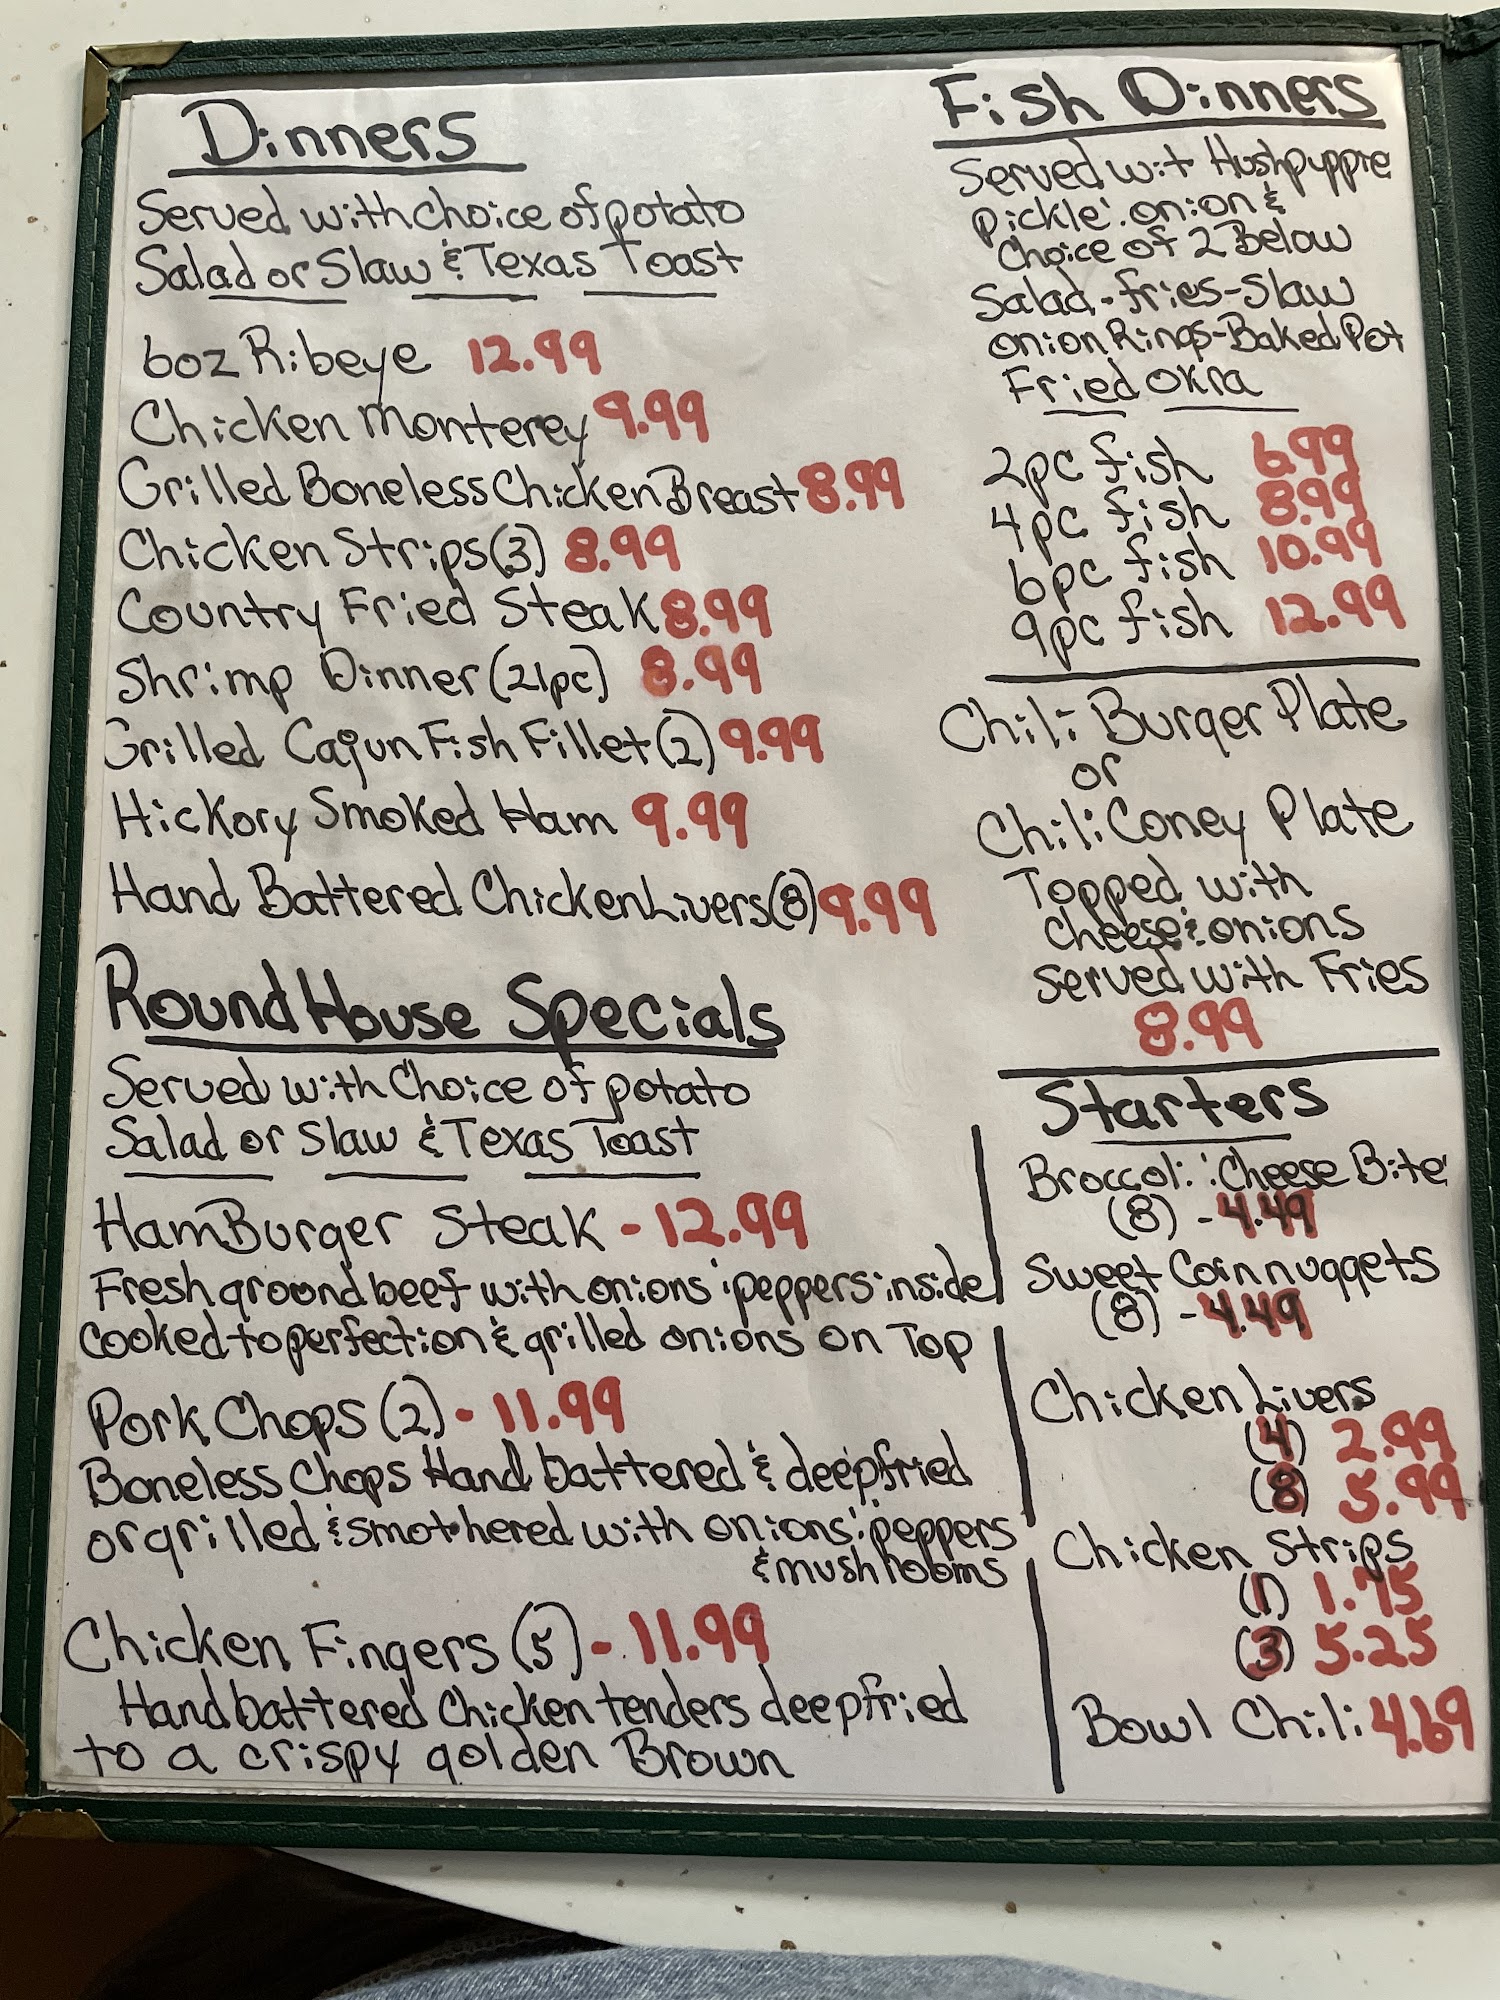 Dinners
Served with choice of potato
Salad or Slaw & Texas Toast
6oz Ribeye 12.99
Chicken Monterey 9.99
Grilled Boneless Chicken Breast 8.99
Chicken Strips (3) 8.99
Country Fried Steak 8.99
Shrimp Dinner (21pc) 8.99
Grilled Cajun Fish Fillet (2) 9.99
Hickory Smoked Ham 9.99
Hand Battered Chicken Livers (8) 9.99
RoundHouse Specials
Served with Choice of potato
Salad or Slaw & Texas Toast
HamBurger Steak - 12.99
Fresh ground beef with onions & peppers inside
cooked to perfection & grilled onions on Top
Pork Chops (2) - 11.99
Boneless Chops Hand battered & deepfried
or grilled & smothered with onions & peppers
& mushrooms
Chicken Fingers (5) - 11.99
Hand battered Chicken tenders deepfried
to a crispy golden Brown
Fish Dinners
Served wit Hushpuppie
pickle & onion &
Choice of 2 Below
Salad - fries - Slaw
onion Rings - Baked Pot
Fried okra
2pc fish 6.99
4pc fish 8.99
6pc fish 10.99
9pc fish 12.99
Chili Burger Plate
or
Chili Coney Plate
Topped with
cheese & onions
served with Fries
8.99
Starters
Broccoli & Cheese Bite
(8) - 4.49
Sweet Corn nuggets
(8) - 4.49
Chicken Livers
(4) 2.99
(8) 5.99
Chicken Strips
(1) 1.75
(3) 5.25
Bowl Chili 4.69